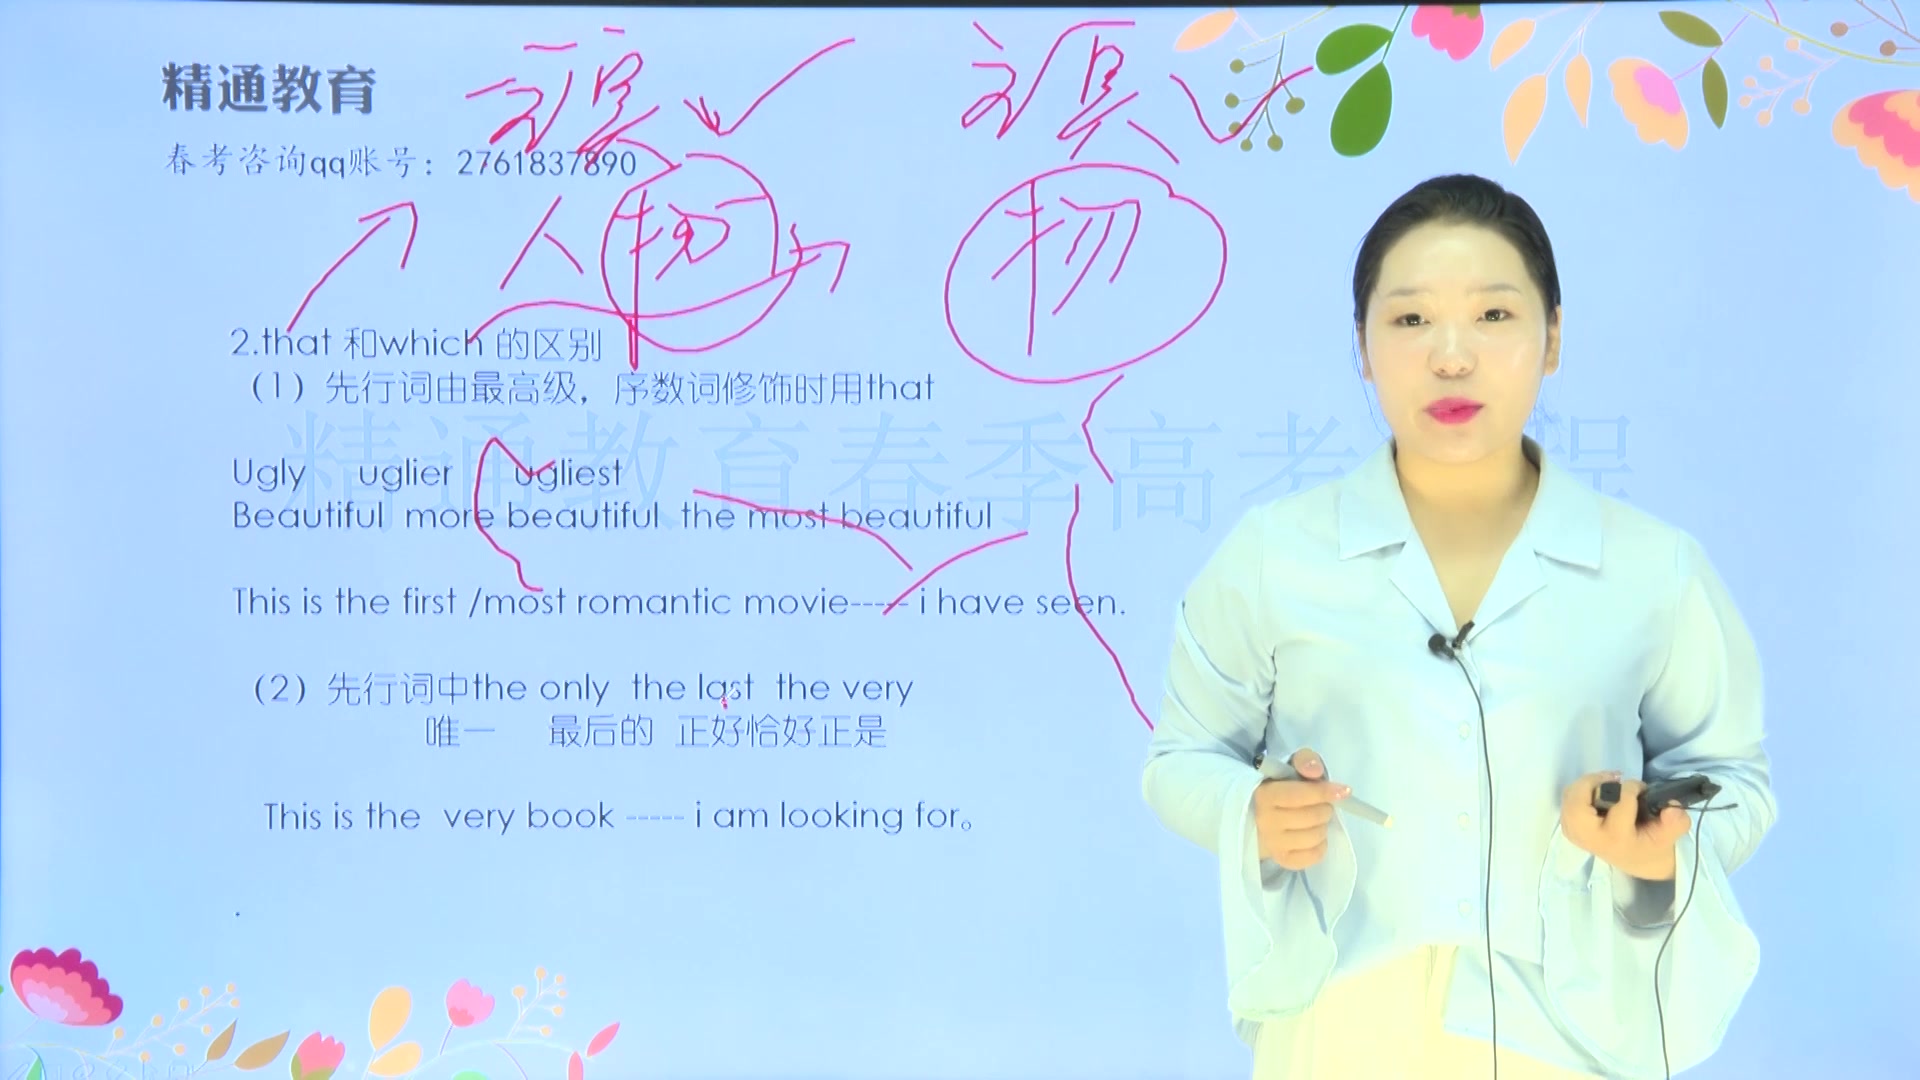 精通教育
春考咨询qq账号：2761837890
人物
物
2.that 和which 的区别
（1）先行词由最高级，序数词修饰时用that
精通教育春季高考
Ugly uglier ugliest
Beautiful more beautiful the most beautiful
This is the first /most romantic movie----- i have seen.
（2）先行词中the only the last the very
唯一 最后的 正好恰好正是
This is the very book ----- i am looking for。